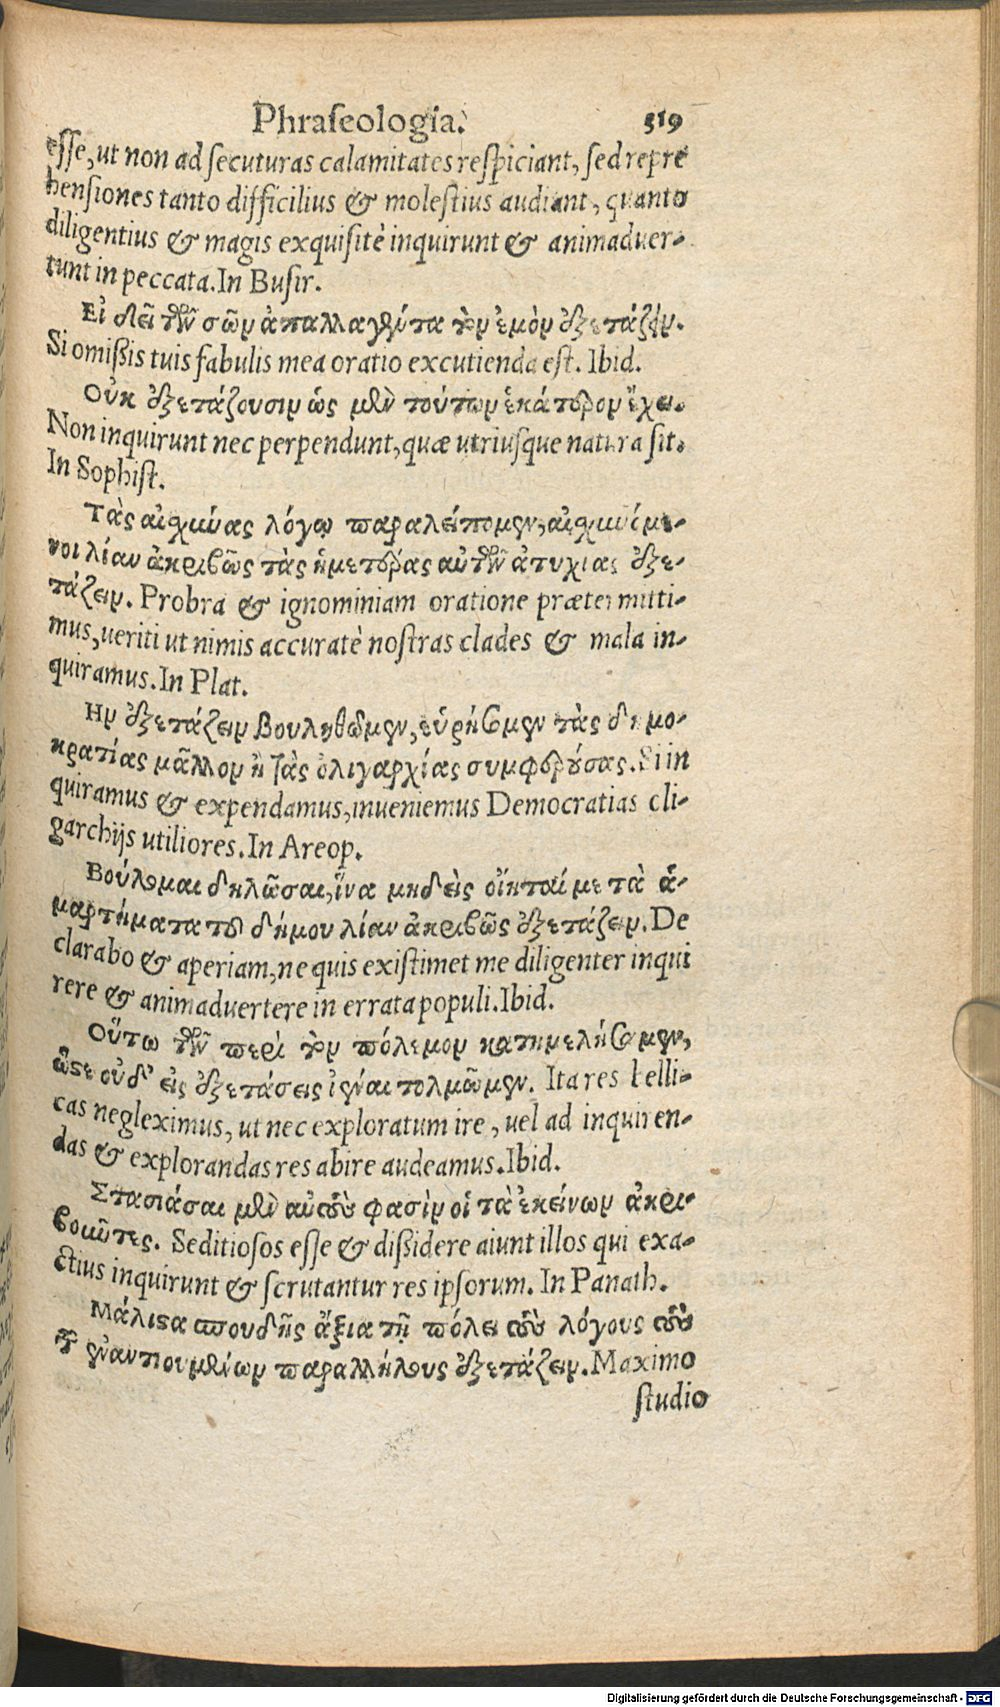 Phraseologia. 519
esse, ut non ad secuturas calamitates respiciant, sed repre
hensiones tanto difficilius & molestius audiant, quanto
diligentius & magis exquisitè inquirunt & animaduer-
tunt in peccata. In Busir.
Εἰ δεῖ τῶν σῶν ἀπαλλαγέντα τὸν ἐμὸν ἐξετάζειν.
Si omißis tuis fabulis mea oratio excutienda est. Ibid.
Οὐκ ἐξετάζουσιν ὡς μὲν τούτων ἑκάτερον ἔχει.
Non inquirunt nec perpendunt, quæ utriusque natura sit.
In Sophist.
Τὰς αἰσχύνας λόγῳ παραλείπομεν, αἰσχυνόμε-
νοι λίαν ἀκριβῶς τὰς ἡμετέρας αὐτῶν ἀτυχίας ἐξε-
τάζειν. Probra & ignominiam oratione prætermitti-
mus, ueriti ut nimis accuratè nostras clades & mala in-
quiramus. In Plat.
Ην ἐξετάζειν βουληθῶμεν, εὑρήσομεν τὰς δημο-
κρατίας μᾶλλον ἢ τὰς ὀλιγαρχίας συμφερούσας. Si in
quiramus & expendamus, inueniemus Democratias oli-
garchijs utiliores. In Areop.
Βούλομαι δηλῶσαι, ἵνα μηδεὶς οἴηταί με τὰ ἁ-
μαρτήματα τοῦ δήμου λίαν ἀκριβῶς ἐξετάζειν. De
clarabo & aperiam, ne quis existimet me diligenter inqui
rere & animaduertere in errata populi. Ibid.
Οὕτω τῶν περὶ τὸν πόλεμον κατημελήσαμεν,
ὥστε οὐδ' εἰς ἐξετάσεις ἰέναι τολμῶμεν. Ita res belli-
cas negleximus, ut nec exploratum ire, uel ad inquiren-
das & explorandas res abire audeamus. Ibid.
Στασιάσαι μὲν αὐτούς φασὶν οἱ τὰ ἐκείνων ἀκρι-
βοῦντες. Seditiosos esse & dißidere aiunt illos qui exa-
ctius inquirunt & scrutantur res ipsorum. In Panath.
Μάλιστα σπουδῆς ἄξια τῇ πόλει τοὺς λόγους τοὺς
τῶν ἐναντιουμένων παραλλήλους ἐξετάζειν. Maximo
studio
Digitalisierung gefördert durch die Deutsche Forschungsgemeinschaft - DFG